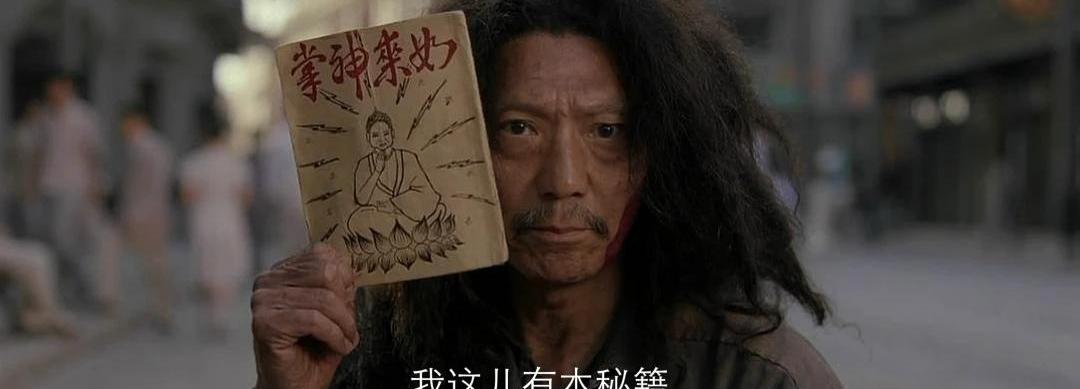 如來神掌
我这儿有本秘籍